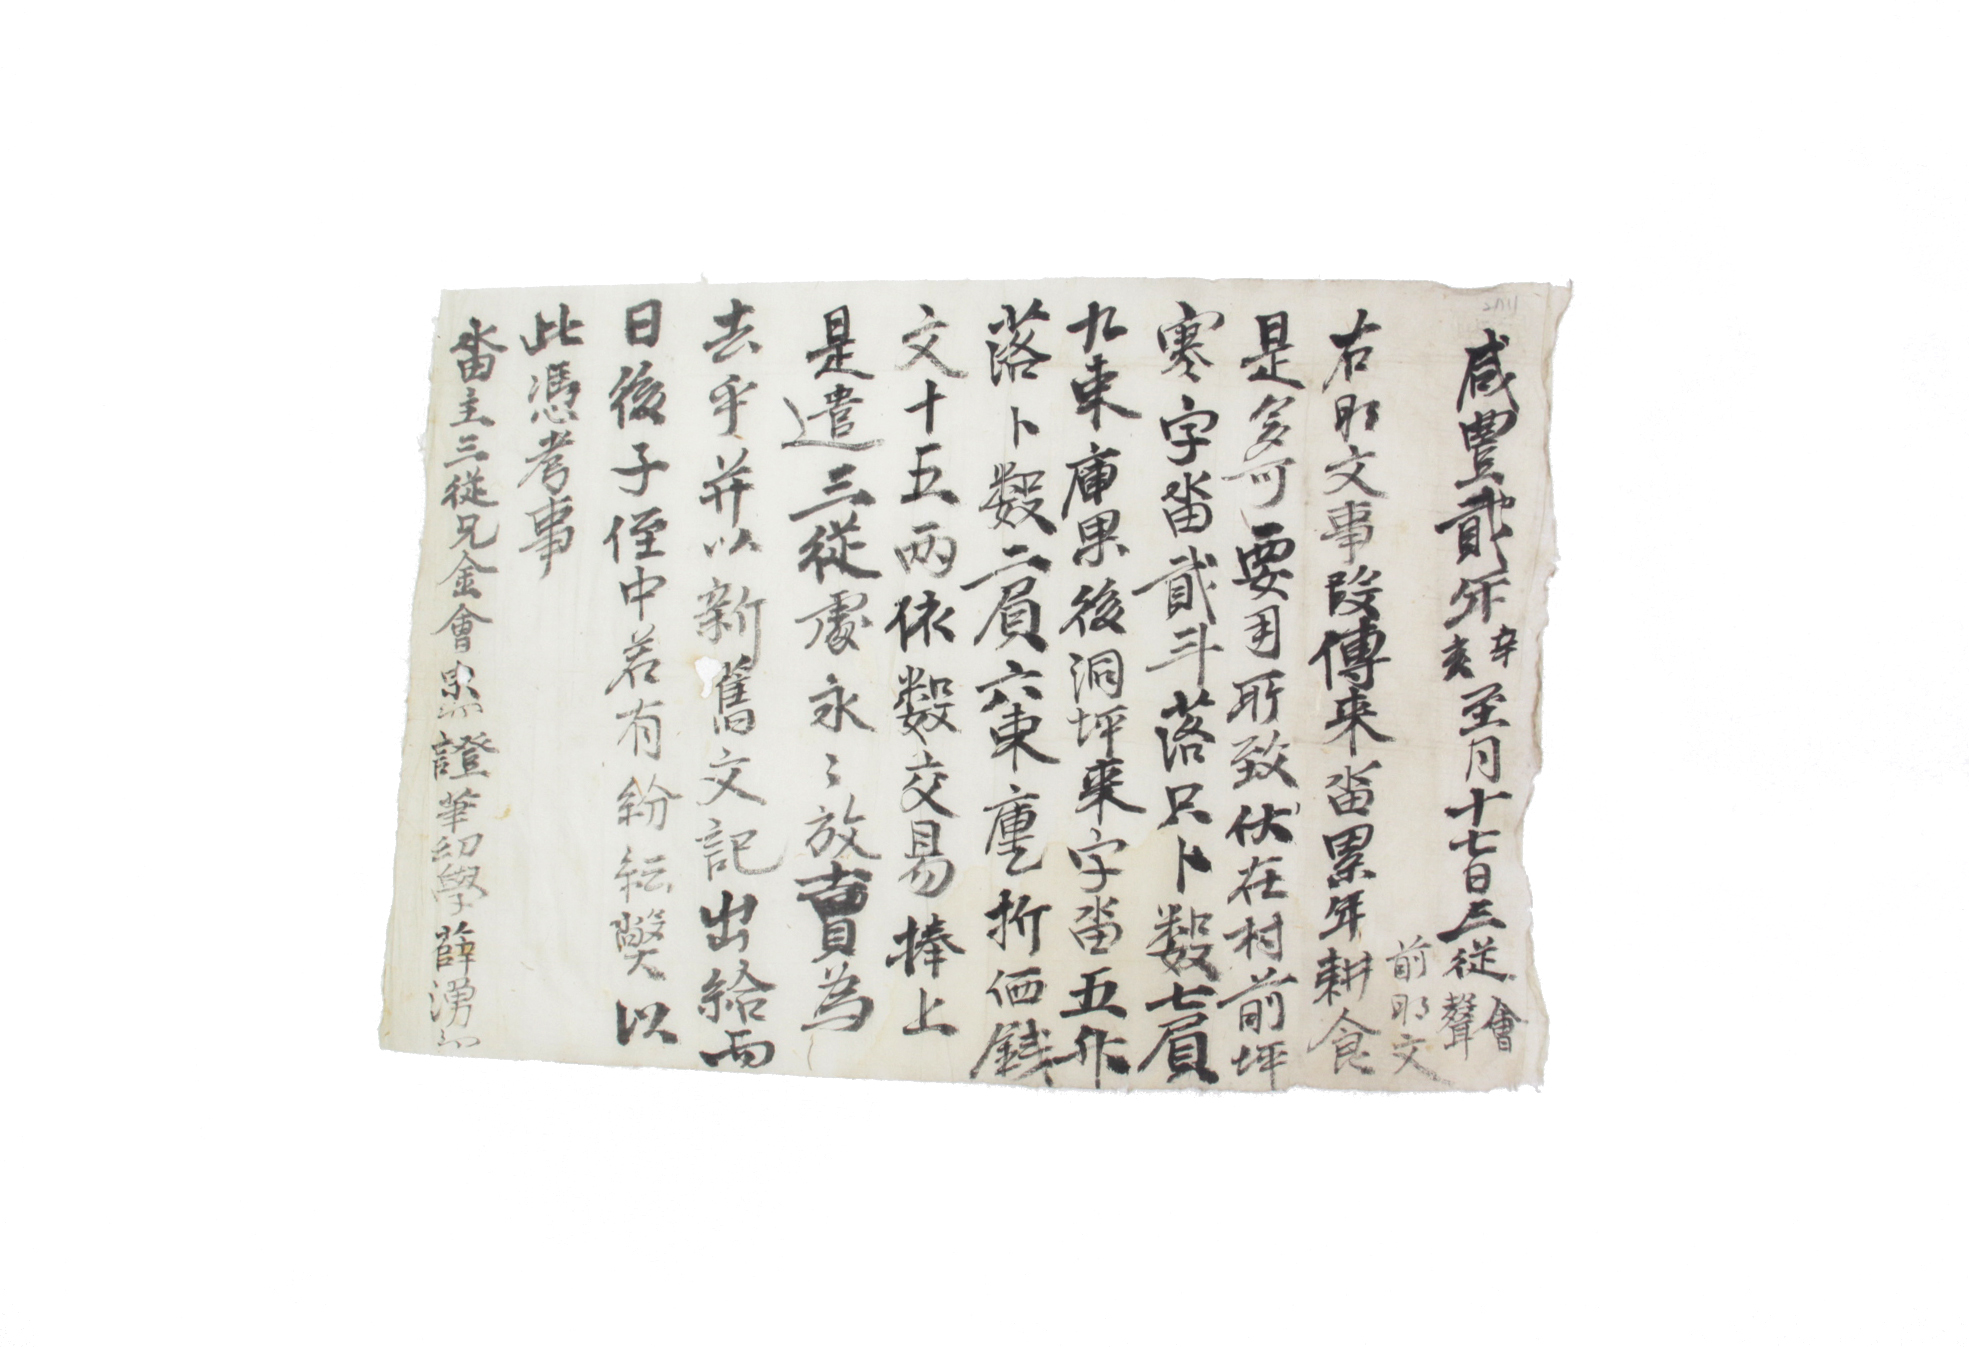 咸豐貳年辛亥至月十七日三從會聲
前明文
右明文事段傳来畓累年耕食
是多可要用所致伏在村前坪
寒字畓貳斗落只卜数七負
九束庫果後洞坪来字畓五斗
落卜数二負六束㐣折価錢
文十五両依数交易捧上
是遣三從處永〻放賣為
去乎并以新舊文記出給而
日後子侄中若有紛紜弊以
此憑考事
畓主三從兄金會 證筆幼學薛湧